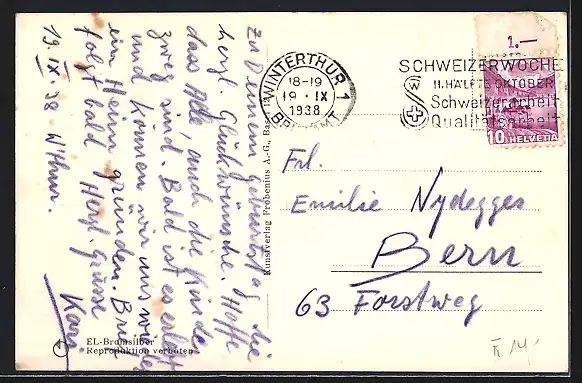 19. IX. 38 W'thur.
Zu Deinem Geburtstag die
herzl. Glückwünsche. Hoffe
dass Alle, auch die Kinder
zweg sind. Bald ist es erlebt
und können wir uns wieder
ein Heim gründen. Brief
folgt bald Herzl. Grüsse
Karl.
EL-Bromsilber
Reproduktion verboten
Kunstverlag Frobenius A.-G., Basel
WINTERTHUR 1
18-19
19. IX
1938
SCHWEIZERWOCHE
II. HÄLFTE OKTOBER
Schweizerarbeit
Qualitätsarbeit
1.—
10 HELVETIA
Frl.
Emilie Nydegger
Bern
63 Forstweg